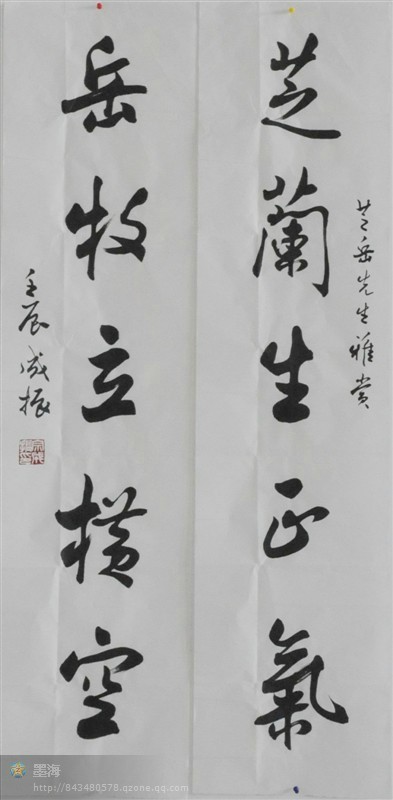 芝岳先生雅赏
芝蘭生正氣
岳牧立橫空
壬辰成振
墨海
http://843480578.qzone.qq.com